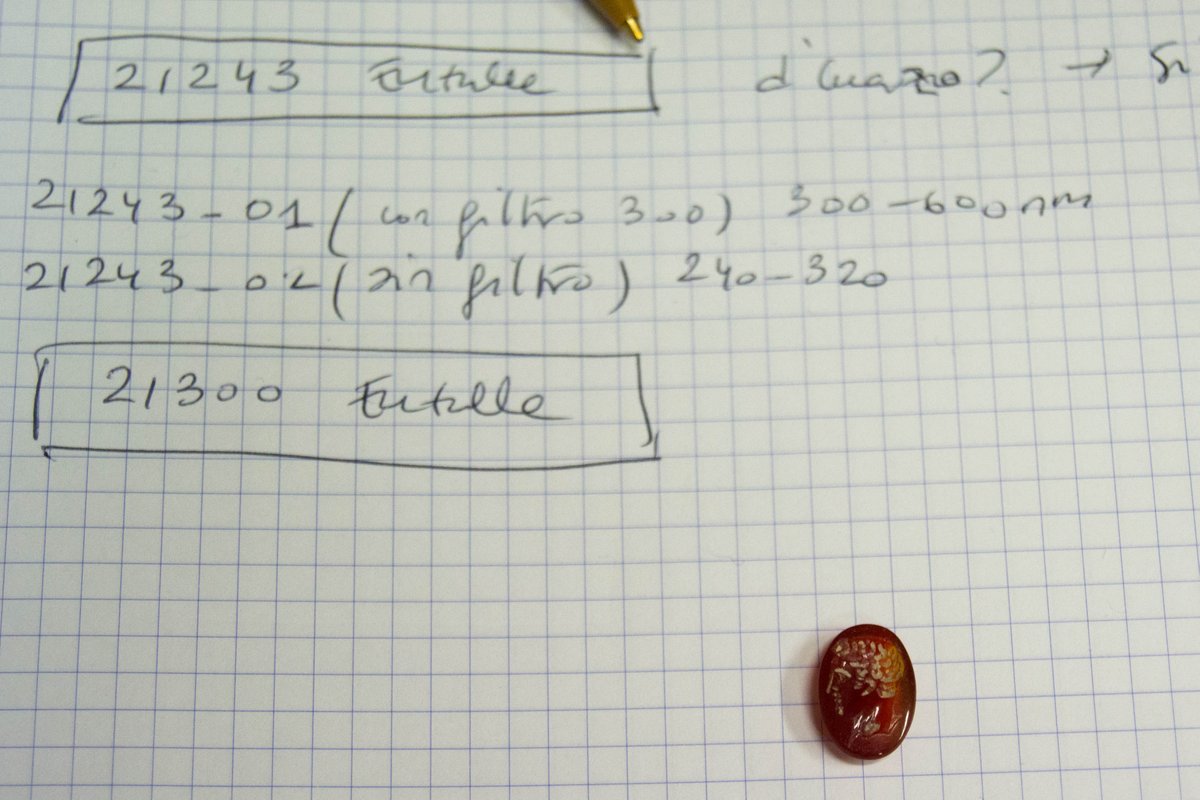 21243 Entalle ¿Cuarzo? → Si
21243-01 (con filtro 300) 300-600 nm
21243-02 (sin filtro) 240-320
21300 Entalle